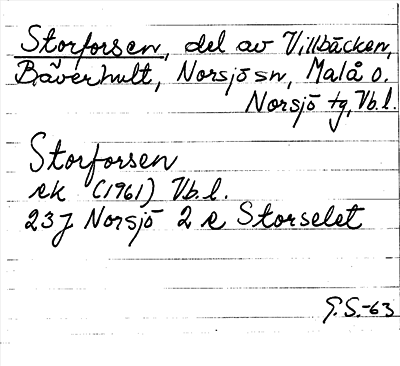 Storforsen, del av Villbäcken,
Bäverhult, Norsjö sn, Malå o.
Norsjö tg, Vb.l.
Storforsen
ek (1961) Vb.l.
23J Norsjö 2 e Storselet
G.S.-63